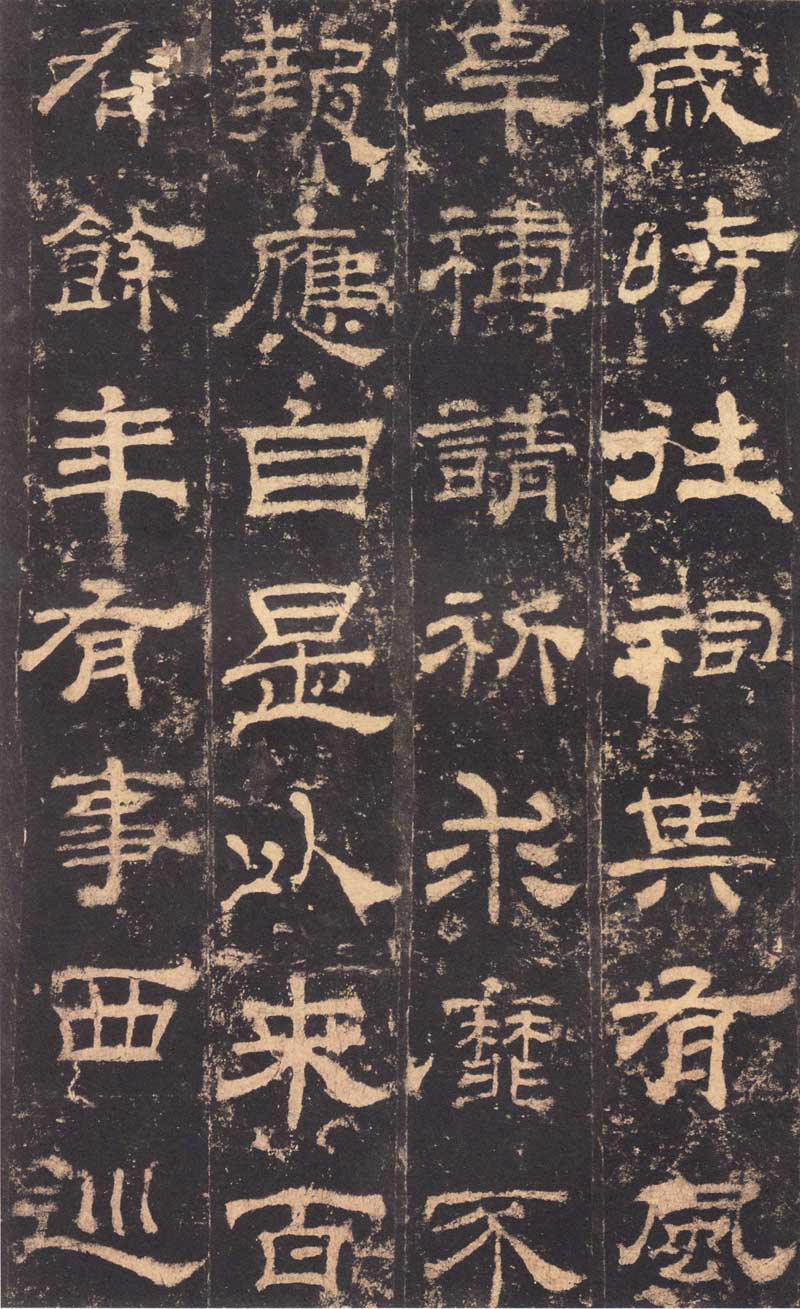 歲時往祠其有風
旱禱請祈求靡不
報應自是以來百
有餘年有事西巡